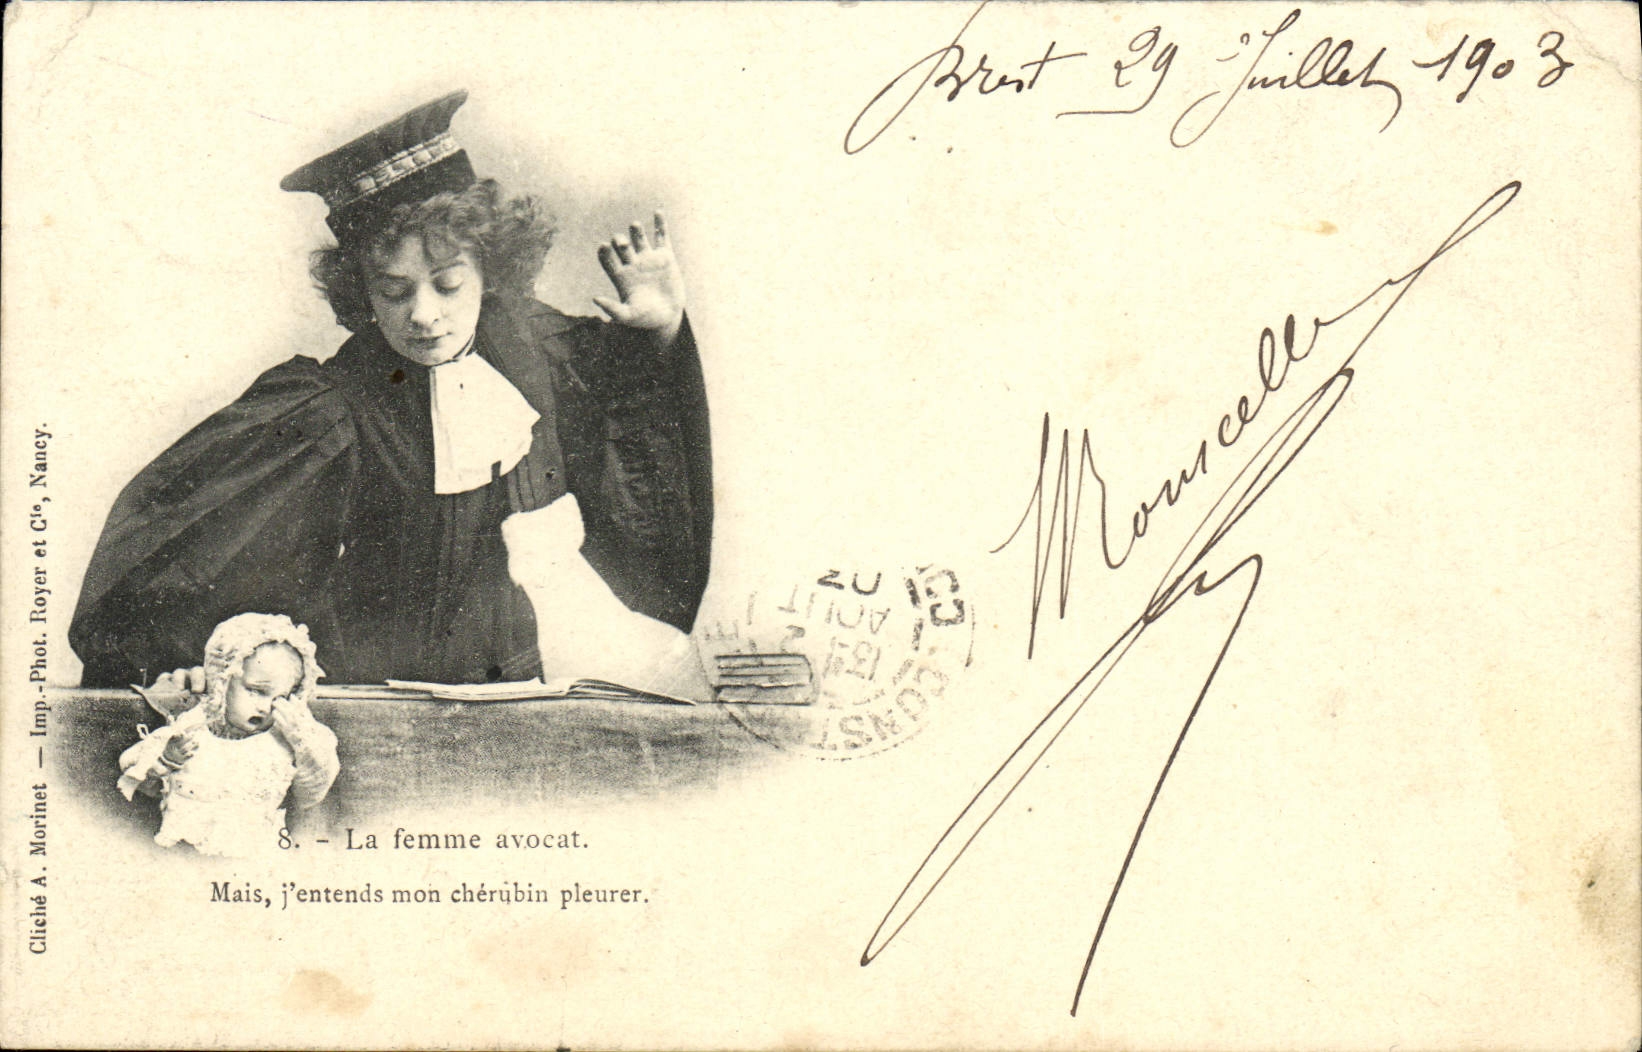 Brest 29 Juillet 1903
8. - La femme avocat.
Mais, j'entends mon chérubin pleurer.
Cliché A. Morinet — Imp.-Phot. Royer et Cie, Nancy.
CONST
AOUT